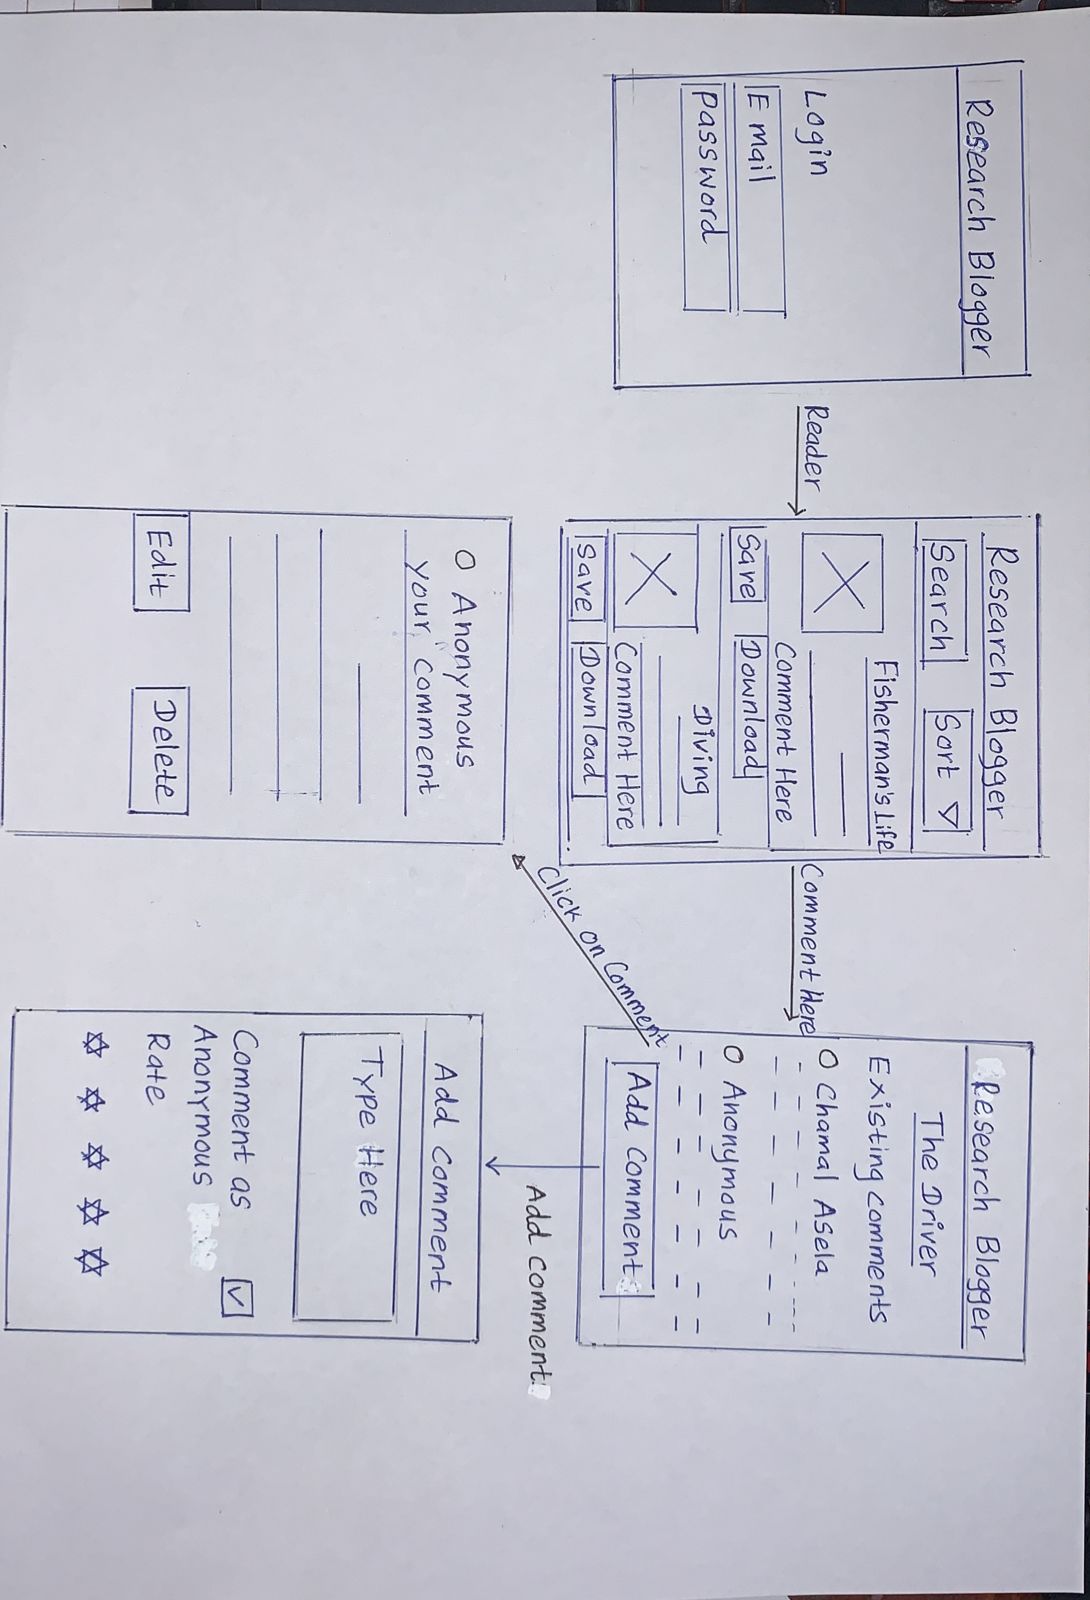 Research Blogger
Login
Email
Password
Reader
Research Blogger
Search
Sort
Fisherman's Life
Comment Here
Save
Download
Diving
Comment Here
Save
Download
Comment Here
Research Blogger
The Driver
Existing comments
O Chamal Asela
O Anonymous
Add Comment
Click on Comment
O Anonymous
your comment
Edit
Delete
Add Comment
Add Comment
Type Here
Comment as
Anonymous
Rate